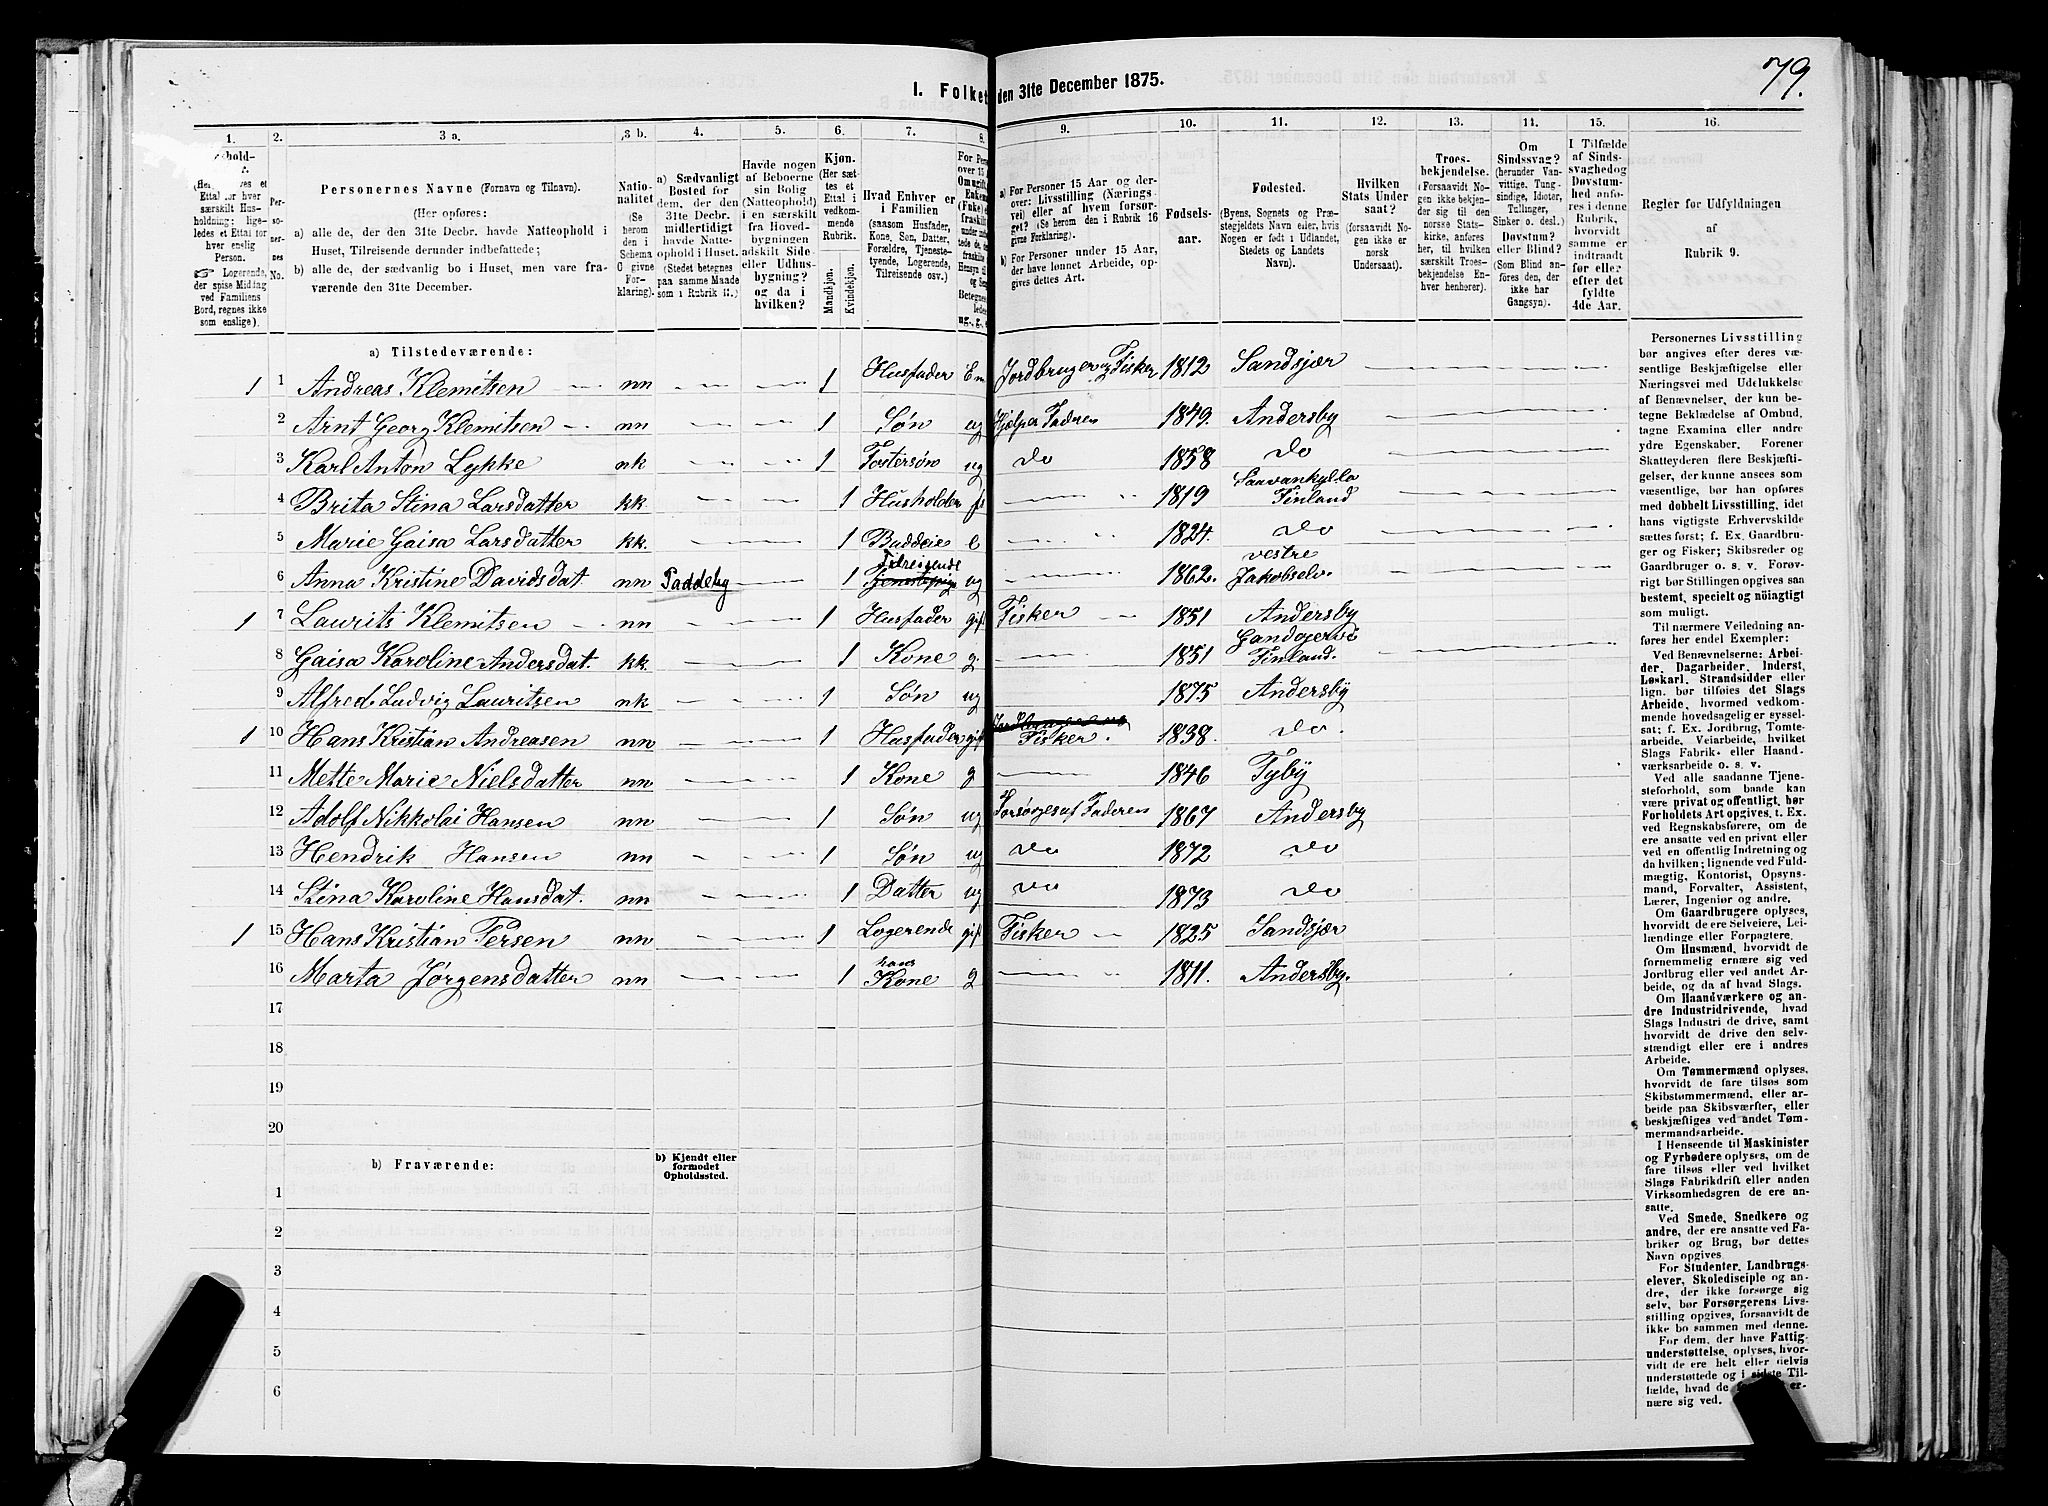 79.
I. Folket den 31te December 1875.
1. 2. 3 a. 3 b. 4. 5. 6. 7. 8. 9. 10. 11. 12. 13. 14. 15. 16.
Personernes Navne (Fornavn og Tilnavn).
(Her opføres:
a) alle de, der den 31te Decbr. havde Natteophold i
Huset, Tilreisende derunder indbefattede;
b) alle de, der sædvanlig bo i Huset, men vare fra-
værende den 31te December.
Natio-
nalitet
(Se
herom
den i
Schema
givne
For-
klaring).
a) Sædvanligt
Bosted for
dem, der den
31te Decbr.
midlertidigt
havde Natte-
ophold i Huset.
(Stedet betegnes
paa samme Maade
som i Rubrik 11.)
Havde nogen
af Beboerne
sin Bolig
(Natteophold)
i en særskilt
fra Hoved-
bygningen
adskilt Side-
eller Udhus-
bygning?
og da i
hvilken?
Kjøn.
(Her sæt-
tes et
Ettal i
vedkom-
mende
Rubrik.)
Mandkjøn.
Kvindekjøn.
Hvad Enhver er
i Familien
(saasom Husfader,
Kone, Søn, Datter,
Forældre, Tjeneste-
tyende, Logerende,
Tilreisende osv.)
a) For Personer 15 Aar og der-
over: Livsstilling (Nærings-
vei) eller af hvem forsør-
get? (Se herom den i Rubrik 16
givne Forklaring).
b) For Personer under 15 Aar,
der have lønnet Arbeide, op-
gives dettes Art.
Fødsels-
aar.
Fødested.
(Byens, Sognets og Præ-
stegjeldets Navn eller, hvis
Nogen er født i Udlandet,
Stedets og Landets
Navn).
Hvilken
Stats Under
saat?
(forsaavidt No-
gen ikke er
norsk
Undersaat).
Troes-
bekjendelse.
(Forsaavidt No-
gen ikke bekjen-
der sig til den
norske Stats-
kirke, anføres
her, til hvilken
særskilt Troes-
bekjendelse En-
hver henhører).
Om
Sindssvag?
(herunder Van-
vittige. Tung-
sindige, Idioter,
Tullinger,
Sinker o. desl.)
Døvstum?
eller Blind?
(Som Blind an-
føres den, der
ikke har
Gangsyn).
I Tilfælde
af Sinds-
svaghed og
Døvstum-
hed anfø-
res i denne
Rubrik,
hvorvidt
samme er
indtraadt
før eller
efter det
fyldte
4de Aar.
Regler for Udfyldningen
af
Rubrik 9.
a) Tilstedeværende:
1 1 Andreas Klemitsen nn 1 Husfader Em Jordbruger og Fisker 1812 Sandsjær
2 Arnt Georg Klemitsen nn 1 Søn ug Hjelper Faderen 1849. Andersby
3 Karl Anton Lykke nk 1 Fostersøn ug do 1858 do
4 Brita Stina Larsdatter kk. 1 Husholder 1819 Saavankylla Finland
5 Marie Gaisa Larsdatter kk. 1 Buddeie e 1824. do
6 Anna Kristine Davidsdat nn Paddeby 1 Tilreisende ug 1862. vestre Jakobselv.
1 7 Laurits Klemitsen nn 1 Husfader gift Fisker 1851 Andersby
8 Gaisa Karoline Andersdat. kk. 1 Kone g. 1851 Finland.
9 Alfred Ludvig Lauritsen nk 1 Søn ug 1875 Andersby
1 10 Hans Kristian Andreasen nn 1 Husfader gift Fisker. 1838. do.
11 Mette Marie Nielsdatter nn 1 Kone g 1846 Fyby
12 Adolf Nikkolai Hansen nn 1 Søn ug Forsørges af Faderen 1867 Andersby
13 Hendrik Hansen nn 1 Søn ug do 1872 do
14 Stina Karoline Hansdat. nn 1 Datter ug do 1873 do
1 15 Hans Kristian Persen nn 1 Logerende gift Fisker 1825 Sandsjær
16 Marta Jørgensdatter nn 1 hans Kone g 1811. Andersby.
17
18
19
20
b) Fraværende:
b) Kjendt eller
formodet
Opholdssted.
1
2
3
4
5
6
Personernes Livsstilling
bør angives efter deres væ-
sentlige Beskjæftigelse eller
Næringsvei med Udelukkelse
af Benævnelser, der kun be-
tegne Beklædelse af Ombud,
tagne Examina eller andre
ydre Egenskaber. Forener
Skatteyderen flere Beskjæfti-
gelser, der kunne ansees som
væsentlige, bør han opføres
med dobbelt Livsstilling, idet
hans vigtigste Erhvervskilde
sættes først; f. Ex. Gaardbru-
ger og Fisker; Skibsreder og
Gaardbruger o. s. v. Forøv-
rigt bør Stillingen opgives saa
bestemt, specielt og nöiagtigt
som muligt.
Til nærmere Veiledning an-
føres her endel Exempler:
Ved Benævnelserne: Arbei-
der, Dagarbeider, Inderst,
Løskarl, Strandsidder eller
lign. bør tilføies det Slags
Arbeide, hvormed vedkom-
mende hovedsagelig er syssel-
sat; f. Ex. Jordbrug, Tomte-
arbeide, Veiarbeide, hvilket
Slags Fabrik- eller Haand-
værksarbeide o. s. v.
Ved alle saadanne Tjene-
steforhold, som baade kan
være privat og offentligt, bør
Forholdets Art opgives, t. Ex.
ved Regnskabsførere, om de
ere ansatte ved en privat eller
ved en offentlig Indretning og
da hvilken; lignende ved Fuld-
mægtig, Kontorist, Opsyns-
mand, Forvalter, Assistent,
Lærer, Ingeniør og andre.
Om Gaardbrugere oplyses,
hvorvidt de ere Selveiere, Lei-
lændinge eller Forpagtere.
Om Husmænd, hvorvidt de
fornemmelig ernære sig ved
Jordbrug eller ved andet Ar-
beide, og da af hvad Slags.
Om Haandværkere og an-
dre Industridrivende, hvad
Slags Industri de drive, samt
hvorvidt de drive den selv-
stændigt eller ere i andres
Arbeide.
Om Tømmermænd oplyses,
hvorvidt de fare tilsøs som
Skibstømmermænd, eller ar-
beide paa Skibsværfter, eller
beskjæftiges ved andet Tøm-
mermandsarbeide.
I Henseende til Maskinister
og Fyrbødere oplyses, om de
fare tilsøs eller ved hvilket
Slags Fabrikdrift eller anden
Virksomhedsgren de ere an-
satte.
Ved Smede, Snedkere og
andre, der ere ansatte ved Fa-
briker og Brug, bør dettes
Navn opgives.
For Studenter, Landbrugs-
elever, Skoledisciple og an-
dre, der ikke forsørge sig
selv, bør Forsørgerens Livs-
stilling opgives, forsaavidt de
ikke bo sammen med denne.
For dem, der have Fattig-
understøttelse, oplyses, hvor-
vidt de ere helt eller delvis
understøttede og i sidste Til-
fælde, hvad de
nære sig ved.